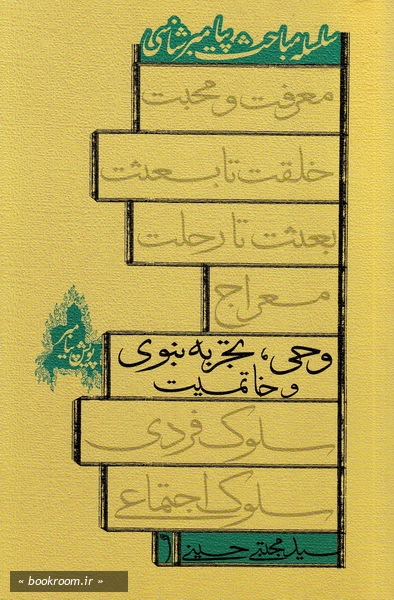 سلسله مباحث پیامبرشناسی
معرفت و محبت
خلقت تا بعثت
بعثت تا رحلت
معراج
وحی، تجربه نبوی
و خاتمیت
سلوک فردی
سلوک اجتماعی
سید مجتبی حسینی
« bookroom.ir »